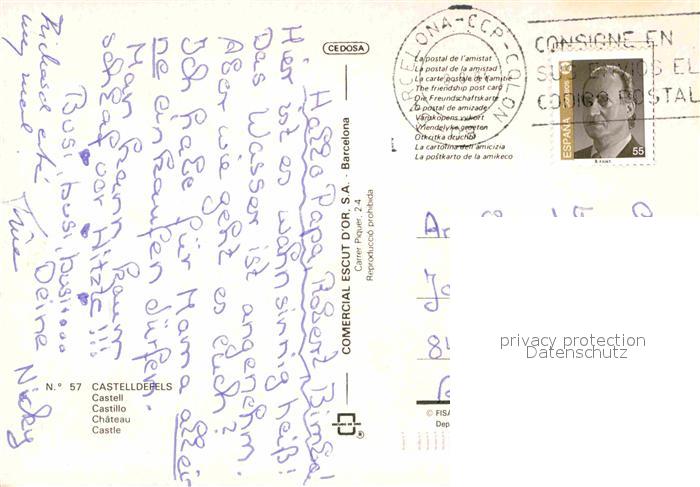 Hallo Papa, Robert, Bimbal
Hier ist es wahnsinnig heiß!
Das Wasser ist angenehm.
Aber wie geht es euch?
Ich habe für Mama allei-
ne einkaufen dürfen.
Man kann kaum
schlafen vor Hitze!!!
Busi, busi, busi.....
Deine Nicky
N.° 57 CASTELLDEFELS
Castell
Castillo
Château
Castle
CEDOSA
COMERCIAL ESCUT D'OR, S.A. - Barcelona
Carrer Piquer, 2-4
Reproducció prohibida
ESCUDO DE ORO
®
La postal de l'amistat
La postal de la amistad
La carte postale de l'amitié
The friendship post card
Die Freundschaftskarte
O postal de amizade
Vänskapens vykort
Vriendelyke groeten
Otkritka druzhbi
La cartolina dell'amicizia
La poŝtkarto de la amikeco
BARCELONA-CCP-COLON
CONSIGNE EN
SUS ENVIOS EL
CODIGO POSTAL
ESPAÑA
55
© FISA
Dep
privacy protection
Datenschutz